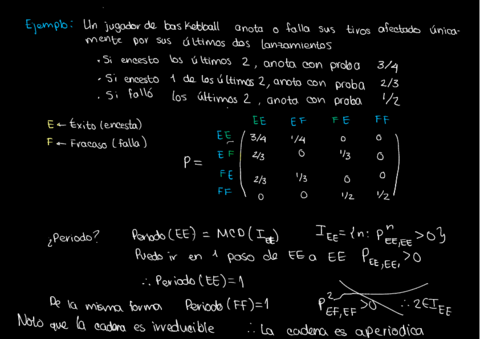 Ejemplo: Un jugador de basketball anota o falla sus tiros afectado única-
mente por sus últimos dos lanzamientos
• Si encesto los últimos 2, anota con proba 3/4
• Si encesto 1 de los últimos 2, anota con proba 2/3
• Si falló los últimos 2, anota con proba 1/2
E ← Éxito (encesta)
F ← Fracaso (falla)
EE EF FE FF
EE 3/4 1/4 0 0
P = EF 2/3 0 1/3 0
FE 2/3 1/3 0 0
FF 0 0 1/2 1/2
¿Periodo? Periodo (EE) = MCD (I_EE) I_EE = {n: P^n_EE,EE > 0}
Puedo ir en 1 paso de EE a EE P_EE,EE, > 0
∴ Periodo (EE) = 1
De la misma forma Periodo (FF) = 1 P^2_EF,EF > 0 ∴ 2 ∈ I_EE
Noto que la cadena es irreducible ∴ La cadena es aperiodica